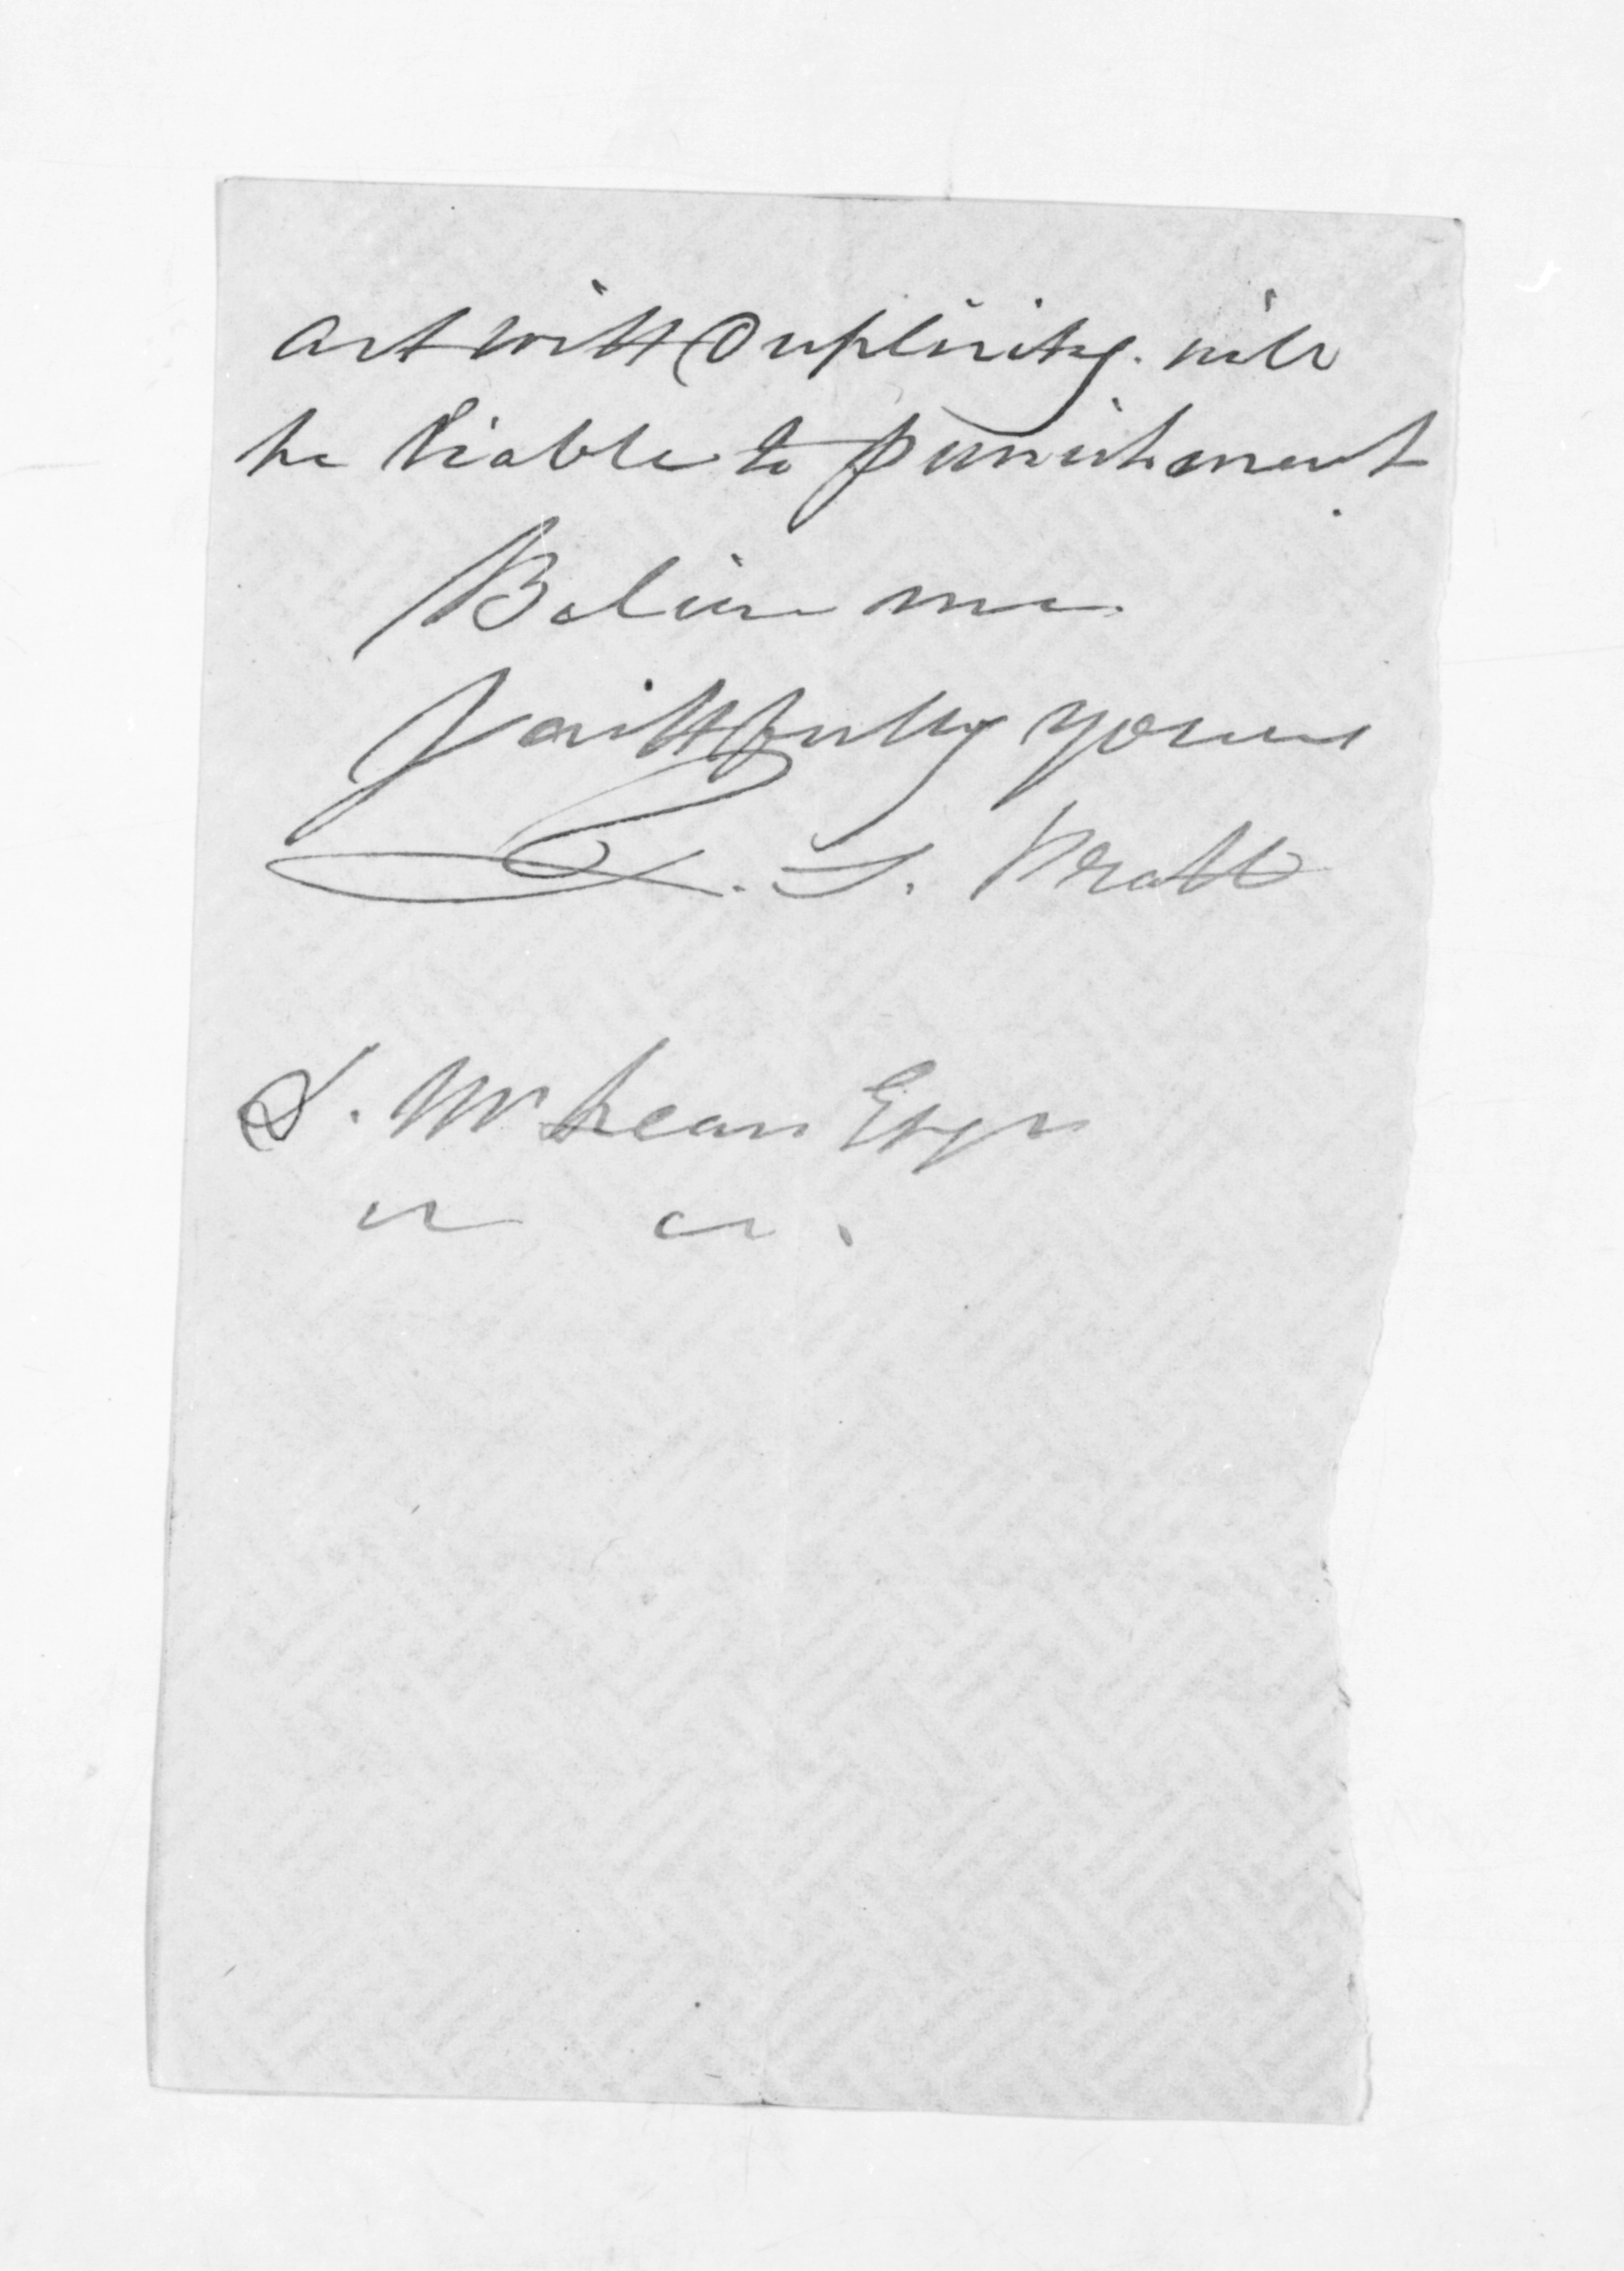 act with Duplicity. will
be liable to punishment
Believe me.
Faithfully yours
R. T. Pratt
D. McLean Esqr